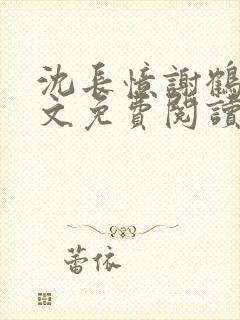 沈長憶謝鶴
文免費閱讀
蕾依